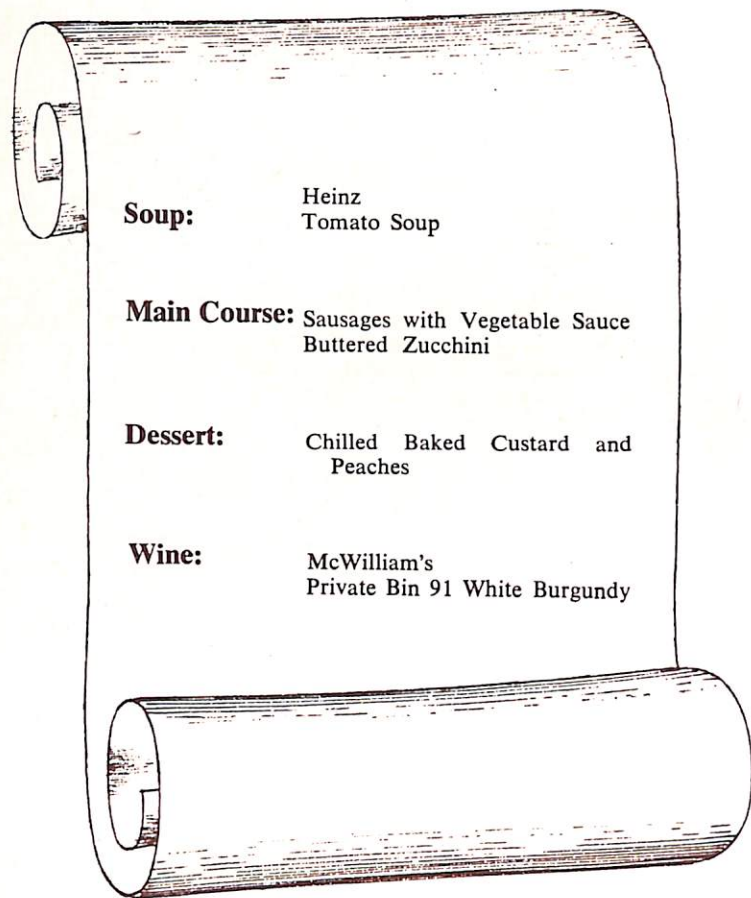 Soup: Heinz
Tomato Soup
Main Course: Sausages with Vegetable Sauce
Buttered Zucchini
Dessert: Chilled Baked Custard and
Peaches
Wine: McWilliam's
Private Bin 91 White Burgundy